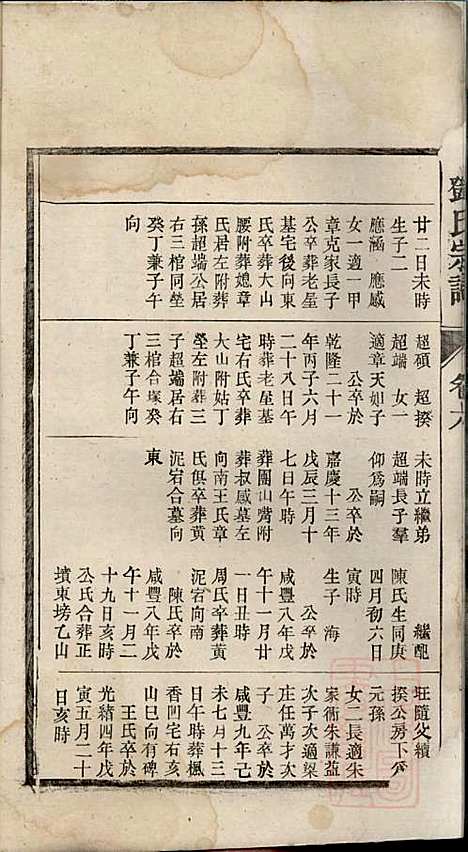 鄧氏宗譜
卷九
廿二日未時
生子二
應涵 應感
女一適一甲
章克家長子
公卒葬老屋
基宅後向東
氏卒葬大山
腰附葬媳章
氏居左附葬
孫超端公居
右三棺同塋
癸丁兼子午
向
超碩 超揆
超端 女一
適章天如子
公卒於
乾隆二十一
年丙子六月
二十八日午
時葬老屋基
宅右氏卒葬
大山附姑丁
塋左附葬三
子超端居右
三棺合塚癸
丁兼子午向
未時立繼弟
超端長子羣
仰爲嗣
公卒於
嘉慶十三年
戊辰三月十
七日午時
葬團山嘴附
葬叔感墓左
向南王氏章
氏俱卒葬黄
泥宕合墓向
東
繼配
陳氏生同庚
四月初六日
寅時
生子 海
公卒於
咸豐八年戊
午十一月廿
一日丑時
周氏卒葬黄
泥宕向南
陳氏卒於
咸豐八年戊
午十一月二
十九日亥時
公氏合葬正
墳東塝乙山
旺隨父續
揆公房下
元孫
女二長適朱
家衖朱謙益
次子次適梁
庄任萬才次
子 公卒於
咸豐九年己
未七月十三
日午時葬楓
香凹宅右亥
山巳向有碑
王氏卒於
光緒四年戊
寅五月二十
日亥時